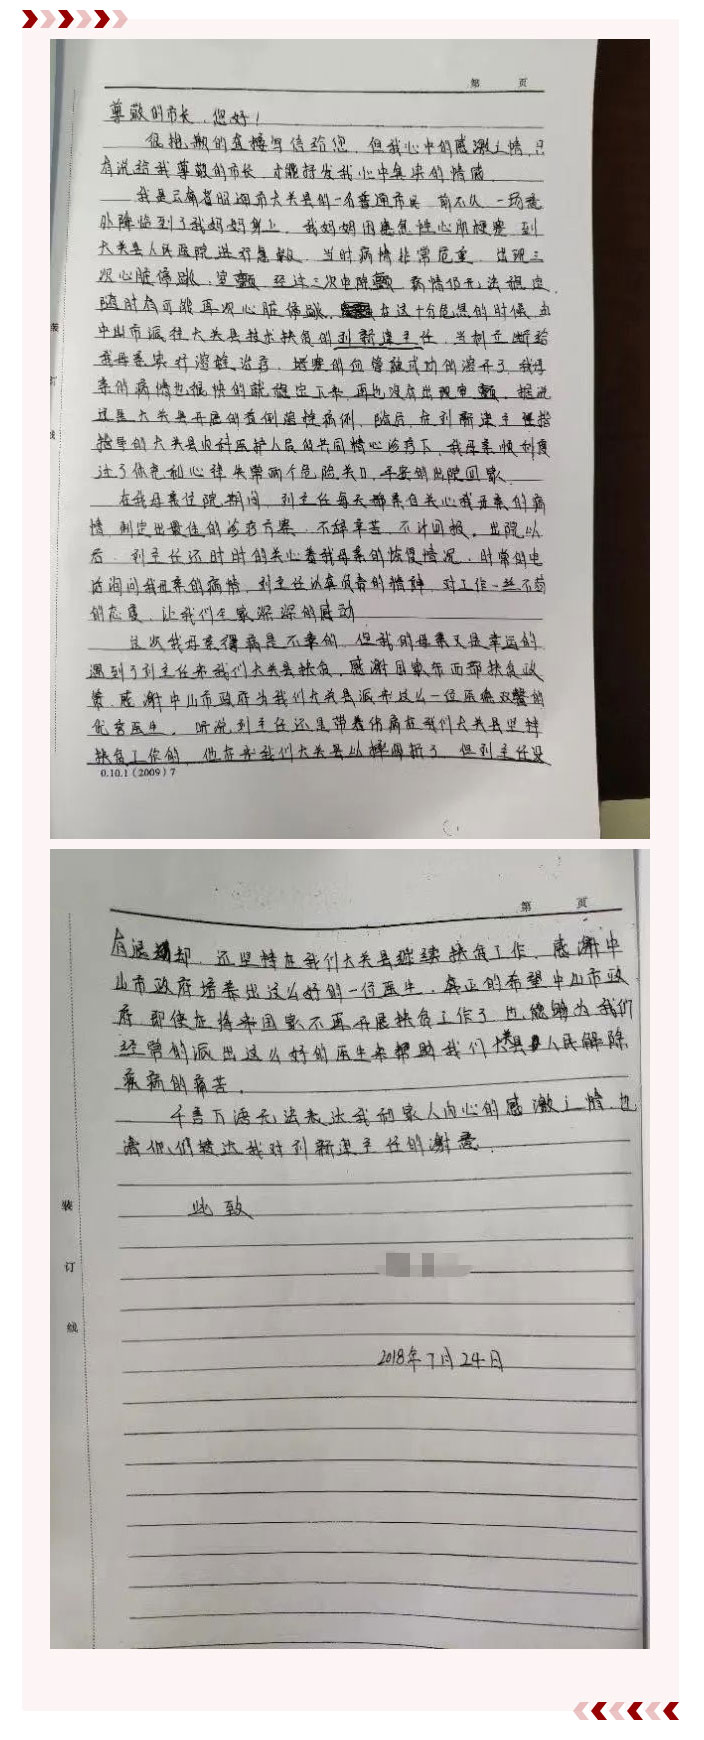 第 页
尊敬的市长，您好！
很抱歉的直接写信给您，但我心中的感激之情，只
有说给我尊敬的市长，才能抒发我心中真浓的情感。
我是云南省昭通市大关县的一名普通市民，前不久，一场意
外降临到了我妈妈身上，我妈妈因患急性心肌梗塞，到
大关县人民医院进行急救，当时病情非常危重，出现三
次心脏停跳，室颤，经过三次电除颤，病情仍无法稳定，
随时有可能再次心脏停跳，在这十分危急的时候，由
中山市派往大关县技术扶贫的刘新建主任，当机立断给
我母亲实行溶栓治疗，堵塞的血管被成功的溶开了，我母
亲的病情也很快的就稳定下来，再也没有出现室颤，据说
这是大关县开展的首例溶栓病例，随后，在刘新建主任指
指导的大关县内科医护人员的共同精心诊疗下，我母亲顺利度
过了休克和心律失常两个危险关口，平安的出院回家。
在我母亲住院期间，刘主任每天都亲自关心我母亲的病
情，制定出最佳的诊疗方案，不辞辛苦，不计回报。出院以
后，刘主任还时时的关心着我母亲的恢复情况，时常的电
话询问我母亲的病情，刘主任认真负责的精神，对工作一丝不苟
的态度，让我们全家深深的感动
这次我母亲得病是不幸的，但我的母亲又是幸运的
遇到了刘主任来我们大关县扶贫，感谢国家东西部扶贫政
策，感谢中山市政府为我们大关县派来这么一位医德双馨的
优秀医生。听说刘主任还是带着伤病在我们大关县坚持
扶贫工作的，他在来我们大关县以摔骨折了，但刘主任没
0.10.1（2009）7
装
订
线
第 页
有退却，还坚持在我们大关县继续扶贫工作，感谢中
山市政府培养出这么好的一位医生，真正的希望中山市政
府，即使在将来国家不再开展扶贫工作了，也能够为我们
经常的派出这么好的医生来帮助我们大关县人民解除
疾病的痛苦。
千言万语无法表达我和家人内心的感激之情，也
请你们转达我对刘新建主任的谢意。
此致
2018年7月24日
装
订
线